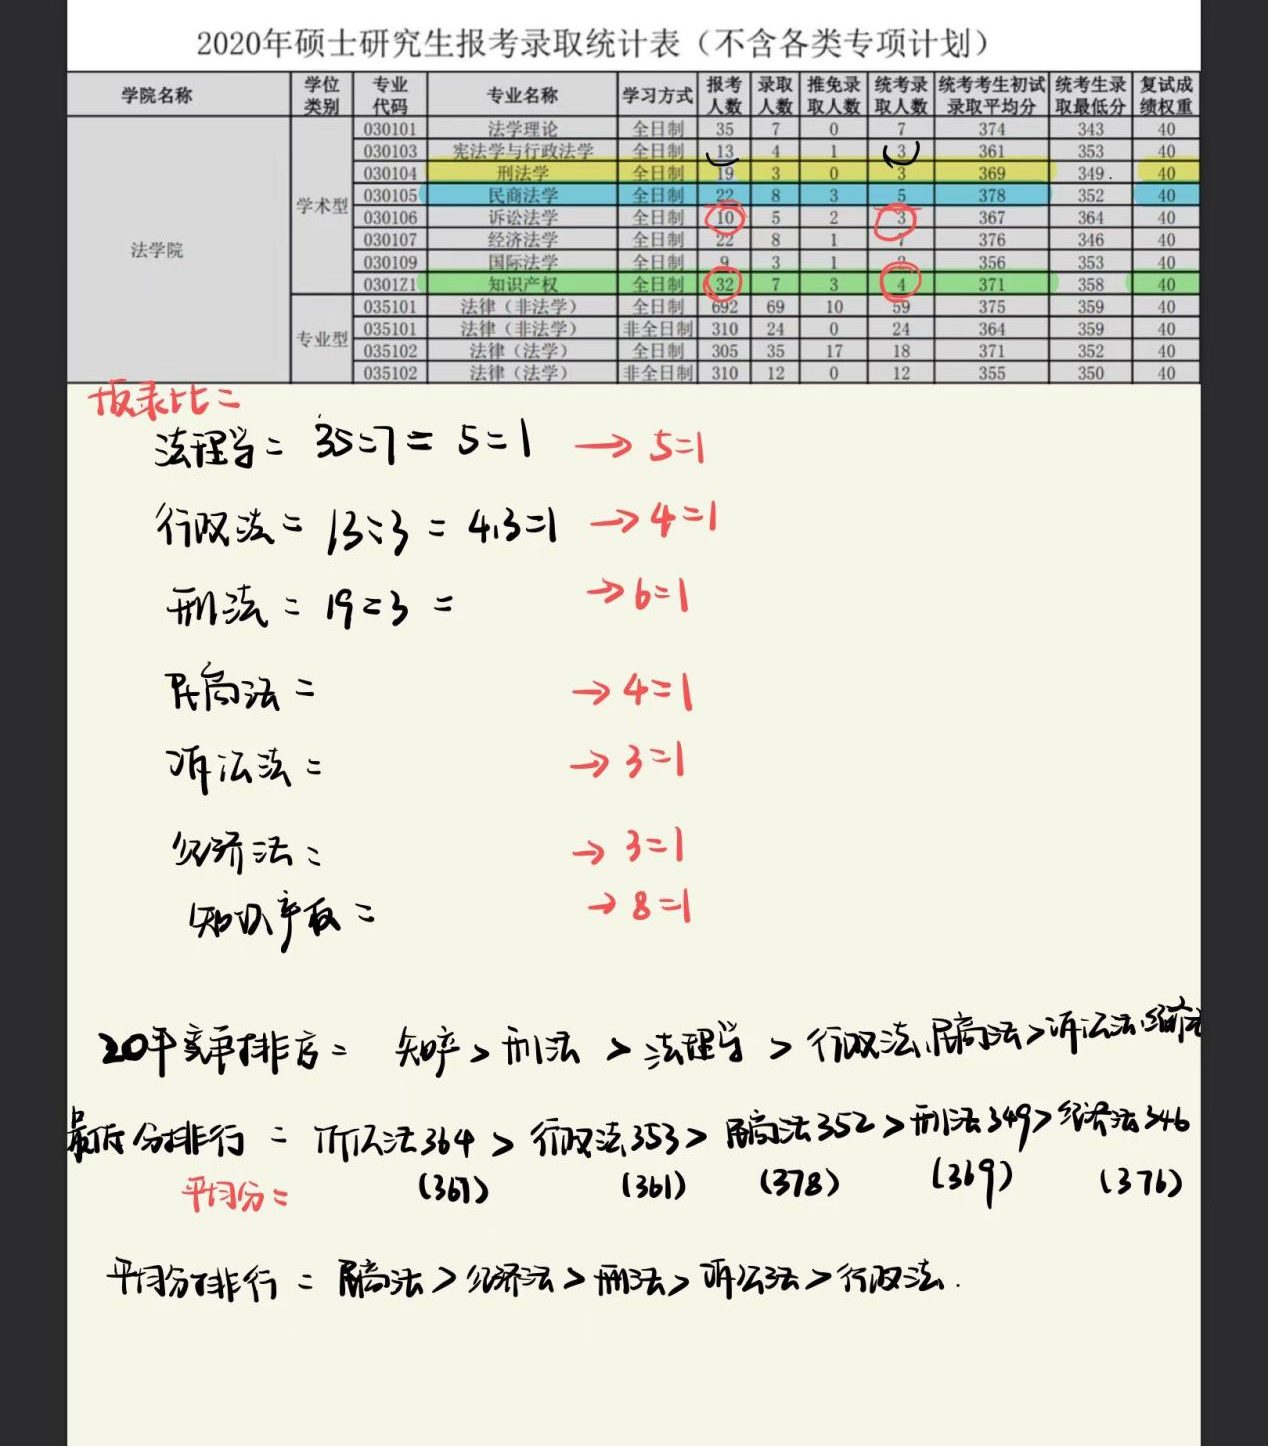 2020年硕士研究生报考录取统计表（不含各类专项计划）
学院名称 学位类别 专业代码 专业名称 学习方式 报考人数 录取人数 推免录取人数 统考录取人数 统考考生初试录取平均分 统考生录取最低分 复试成绩权重
法学院
学术型
030101 法学理论 全日制 35 7 0 7 374 343 40
030103 宪法学与行政法学 全日制 13 4 1 3 361 353 40
030104 刑法学 全日制 19 3 0 3 369 349 40
030105 民商法学 全日制 22 8 3 5 378 352 40
030106 诉讼法学 全日制 10 5 2 3 367 364 40
030107 经济法学 全日制 22 8 1 7 376 346 40
030109 国际法学 全日制 9 3 1 2 356 353 40
0301Z1 知识产权 全日制 32 7 3 4 371 358 40
专业型
035101 法律（非法学） 全日制 692 69 10 59 375 359 40
035101 法律（非法学） 非全日制 310 24 0 24 364 359 40
035102 法律（法学） 全日制 305 35 17 18 371 352 40
035102 法律（法学） 非全日制 310 12 0 12 355 350 40
报录比：
法理学：35:7 = 5:1 → 5:1
行政法：13:3 = 4.3:1 → 4:1
刑法：19:3 = → 6:1
民商法： → 4:1
诉讼法： → 3:1
经济法： → 3:1
知识产权： → 8:1
20年竞争排序：知产 > 刑法 > 法理学 > 行政法、民商法 > 诉讼法、经济法
最低分排行：诉讼法364 > 行政法353 > 民商法352 > 刑法349 > 经济法346
平均分：(367) (361) (378) (369) (376)
平均分排行：民商法 > 经济法 > 刑法 > 诉讼法 > 行政法.